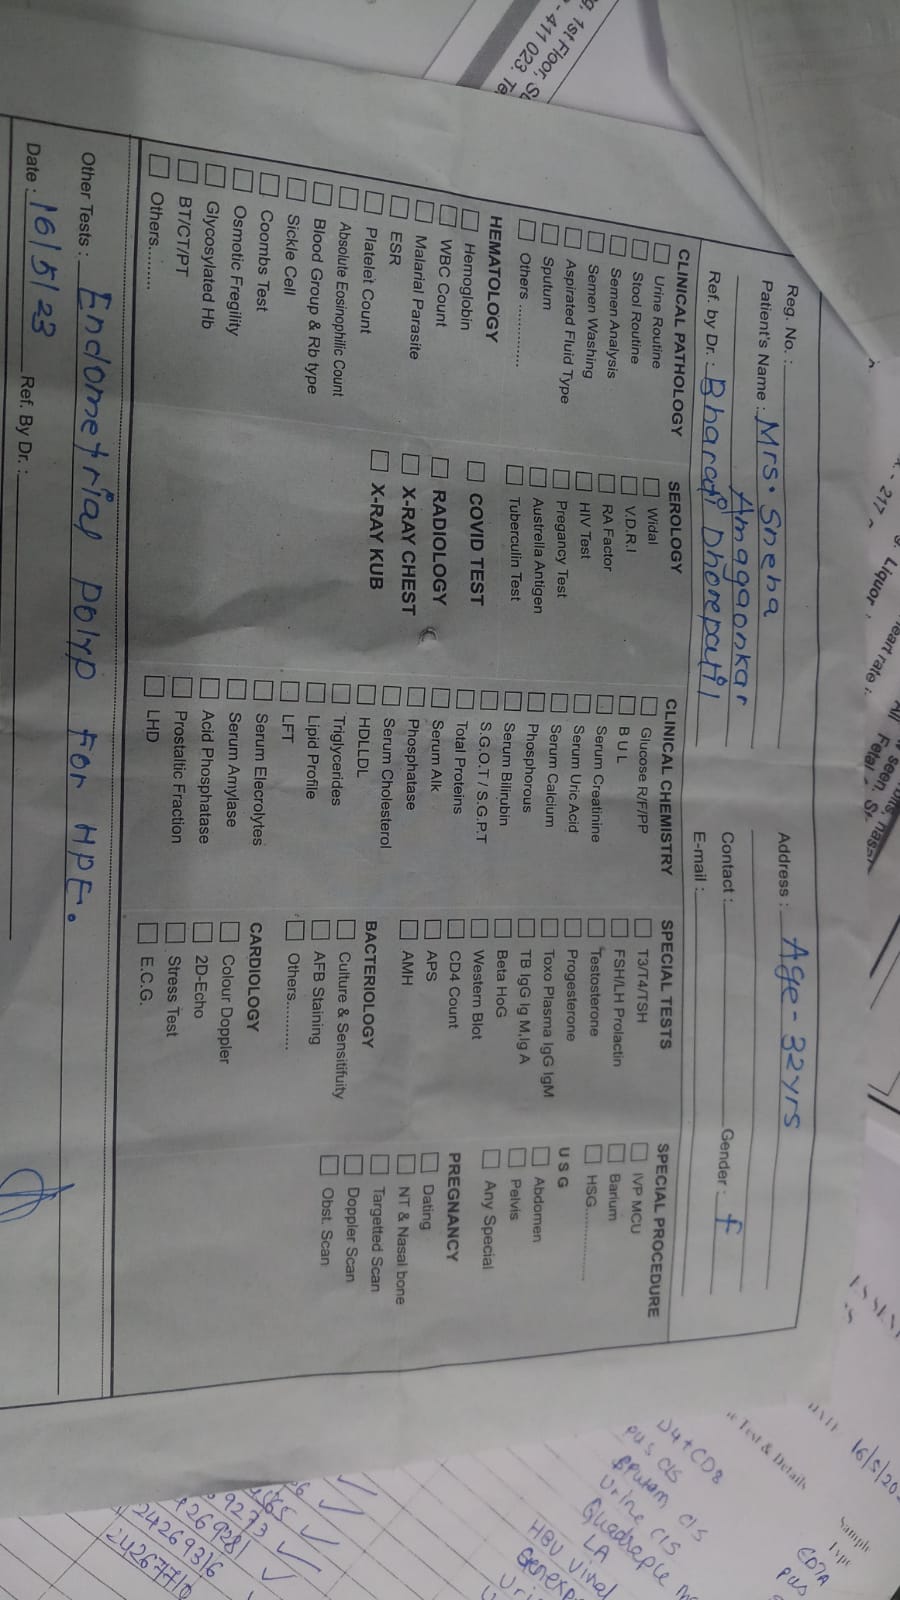 Reg. No. :
Patient's Name : Mrs. Sneha
Amagaonkar
Ref. by Dr. : Bharati Dhorepatil
Address : Age - 32 yrs
Contact :
Gender : f
E-mail :
CLINICAL PATHOLOGY
Urine Routine
Stool Routine
Semen Analysis
Semen Washing
Aspirated Fluid Type
Sputum
Others .............
HEMATOLOGY
Hemoglobin
WBC Count
Malarial Parasite
ESR
Platelet Count
Absolute Eosinophilic Count
Blood Group & Rb type
Sickle Cell
Coombs Test
Osmotic Fregility
Glycosylated Hb
BT/CT/PT
Others........
SEROLOGY
Widal
V.D.R.I
RA Factor
HIV Test
Pregancy Test
Austrella Antigen
Tuberculin Test
COVID TEST
RADIOLOGY
X-RAY CHEST
X-RAY KUB
CLINICAL CHEMISTRY
Glucose R/F/PP
B U L
Serum Creatinine
Serum Uric Acid
Serum Calcium
Phosphorous
Serum Bilirubin
S.G.O.T / S.G.P.T
Total Proteins
Serum Alk
Phosphatase
Serum Cholesterol
HDLLDL
Triglycerides
Lipid Profile
LFT
Serum Elecrolytes
Serum Amylase
Acid Phosphatase
Prostaltic Fraction
LHD
SPECIAL TESTS
T3/T4/TSH
FSH/LH Prolactin
Testosterone
Progesterone
Toxo Plasma IgG IgM
TB IgG Ig M,Ig A
Beta HoG
Western Blot
CD4 Count
APS
AMH
BACTERIOLOGY
Culture & Sensitifuity
AFB Staining
Others..........
CARDIOLOGY
Colour Doppler
2D-Echo
Stress Test
E.C.G.
SPECIAL PROCEDURE
IVP MCU
Barium
HSG...............
U S G
Abdomen
Pelvis
Any Special
PREGNANCY
Dating
NT & Nasal bone
Targetted Scan
Doppler Scan
Obst. Scan
Other Tests : Endometrial polyp for HPE.
Date : 16/5/23 Ref. By Dr. :
1st Floor,
411 023.
Liquor
Test & Details
Sample
Type
D4 + CD8
Pus C/S
Sputam C/S
Urine C/S
LA
HBV Viral
9273
24269316
24267710